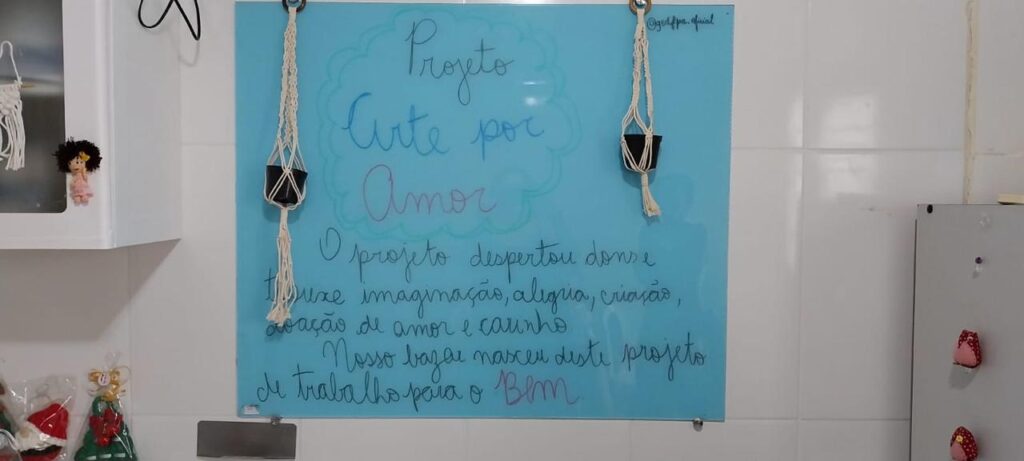 Projeto
Arte por
Amor
O projeto despertou dons e
trouxe imaginação, alegria, criação,
doação de amor e carinho
Nosso bazar nasceu deste projeto
de trabalho para o Bem